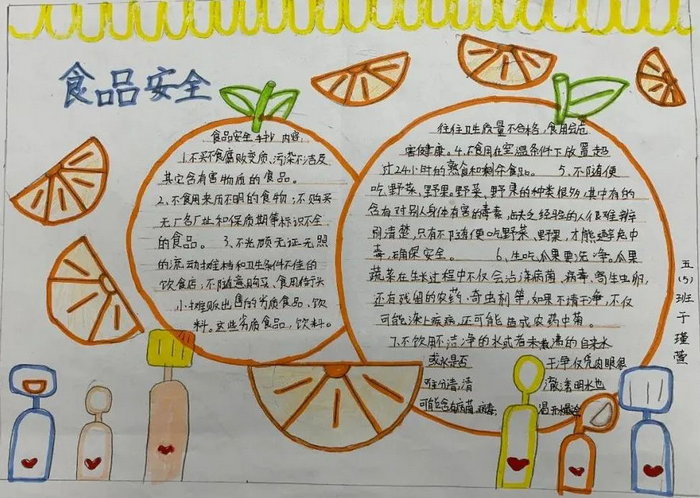 食品安全
食品安全手抄内容
1.不买不食腐败变质、污染不洁及
其它含有害物质的食品。
2、不食用来历不明的食物；不购买
无厂名厂址和保质期等标识不全
的食品。 3、不光顾无证无照
的流动摊档和卫生条件不佳的
饮食店；不随意购买、食用街头
小摊贩出售的劣质食品、饮
料。这些劣质食品、饮料。
往往卫生质量不合格，食用会危
害健康。4.不食用在室温条件下放置超
过24小时的熟食和剩余食品。 5、不随便
吃野菜、野果。野菜、野果的种类很多，其中有的
含有对人身体有害的毒素，缺乏经验的人很难辨
别清楚，只有不随便吃野菜、野果，才能避免中
毒，确保安全。 6、生吃瓜果要洗净。瓜果
蔬菜在生长过程中不仅会沾染病菌、病毒、寄生虫卵，
还有残留的农药、杀虫剂等，如果不清洗干净，不仅
可能染上疾病，还可能造成农药中毒。
7.不饮用不洁净的水或者未煮沸的自来水
水是否干净，仅凭肉眼很
难分清，清澈透明水也
可能含有病菌、病毒，
五(5)班 于瑾萱